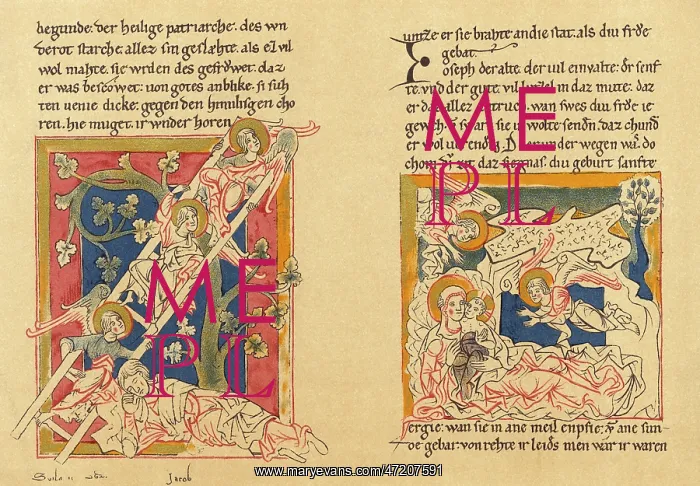 begunde. der heilige patriarche. des wn
derot starche. allez sin geslæhte. als el vil
wol mahte. sie wrden des gefrowet. daz
er was bescowet. uon gotes anblike. si sih
ten uenie dicke. gegen den himilisgen cho
ren. hie muget. ir wnder horen
Jacob
untze er sie brahte an die stat. als diu frőe
gebat.
Joseph der alte. der uil einualte. der senf
te. vnd der gute. vil in daz mute. daz
er daz allez wan swes diu frőe ie
gewch. sie wolte sendn. daz chund
er wol uerendin. wnder wegen
chom di zit daz genas. diu geburt sanfte
ergie. wan sie in ane meil enpfie. ane sun
de gebar. von rehte ir leids men war ir waren
ME
PL
ME
PL
www.maryevans.com/47207591